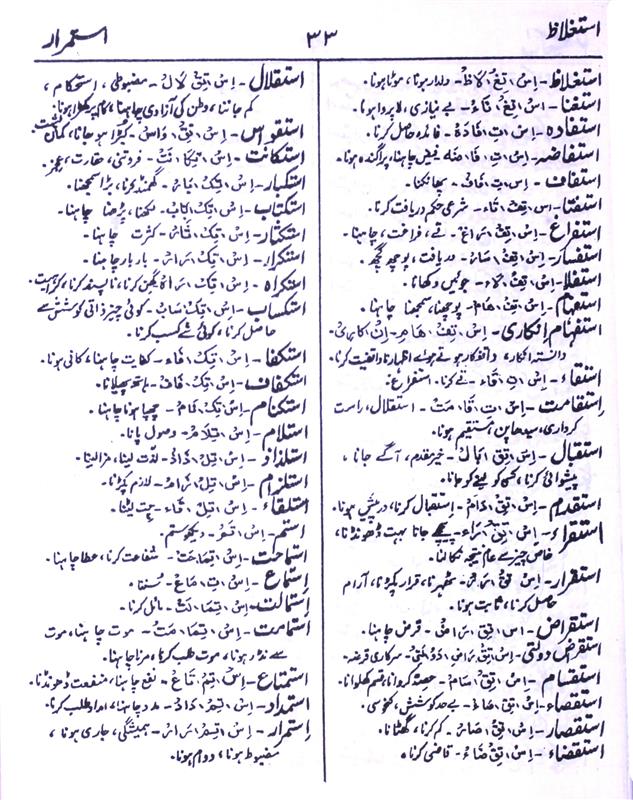 استغلاظ
۳۳
استمرار
استغلاظ۔ اِس اتِغ الاَظ۔ دلدار ہونا، موٹا ہونا۔
استغنا۔ اِس اتِغ انَاء۔ بے نیازی، لاپروا ہونا۔
استفادہ۔ اِس اتِ افَادَہ۔ فائدہ حاصل کرنا۔
استفاضہ۔ اِس اتِ افَاضَہ فیض چاہنا، پراگندہ ہونا۔
استفاف۔ اس اتِ افَاف۔ پھانکنا۔
استفتا۔ اِس اتِف اتَاء۔ شرعی حکم دریافت کرنا۔
استفراغ۔ اِس اتِف ارَاغ۔ قے، فراغت، چاہنا۔
استفسار۔ اِس اتِف اسَار۔ دریافت، پوچھ گچھ۔
استفلا۔ اِس اتِف الَاء۔ جوئیں دکھانا۔
استفہام۔ اِس اتِف اھَام۔ پوچھنا، سمجھنا چاہنا۔
استفہام انکاری۔ اِس اتِف اھَامِ۔ اِن اکَارِی۔
دانستہ انکار، واقفکار ہوتے ہوئے اظہار ناواقفیت کرنا۔
استقاء۔ اِس اتِ اقَاء۔ قے کرنا۔ استفراغ۔
استقامت۔ اِس اتِ اقَامَت۔ استقلال، راست
کرداری، سیدھا پن، مستقیم ہونا۔
استقبال۔ اِس اتِق ابَال۔ خیر مقدم، آگے جانا،
پیشوائی کرنا، کسی کو لینے کو جانا۔
استقدام۔ اِس اتِق ادَام۔ استقبال کرنا، درپیش ہونا۔
استقراء۔ اِس اتِق ارَاء۔ پیچھے جانا بہت ڈھونڈنا،
خاص چیز سے عام نتیجہ نکالنا۔
استقرار۔ اِس اتِق ارَار۔ ٹھہرنا، قرار پکڑنا، آرام
حاصل کرنا، ثابت ہونا۔
استقراض۔ اس اتِق ارَاض۔ قرض چاہنا۔
استقراض دولتی۔ اِس اتِق ارَاضِ ادَولَتی۔ سرکاری قرضہ۔
استقسام۔ اِس اتِق اسَام۔ حصہ کروانا، قسم کھلوانا۔
استقصاء۔ اِس اتِق اصَاء۔ بے حد کوشش، کنجوسی۔
استقصار۔ اِس اتِق اصَار۔ کم کرنا، گھٹانا۔
استقضاء۔ اِس اتِق اضَاء۔ قاضی کرنا۔
استقلال۔ اِس اتِق الَال۔ مضبوطی، استحکام،
کم جاننا، وطن کی آزادی چاہنا،
استقواس۔ اِس اتِق اوَاس۔ کبڑا ہو جانا، کمان
استکانت۔ اِس اتِکَانَت۔ فروتنی، حقارت، عجز۔
استکبار۔ اِس اتِک ابَار۔ گھمنڈ کرنا، بڑا سمجھنا۔
استکتاب۔ اِس اتِک اتَاب۔ لکھنا، پڑھنا چاہنا۔
استکثار۔ اِس اتِک اثَار۔ کثرت چاہنا۔
استکرار۔ اِس اتِک ارَار۔ بار بار چاہنا۔
استکراہ۔ اِس اتِک ارَاہ گھن کرنا، ناپسند کرنا، کراہت۔
استکساب۔ اِس اتِک اسَاب۔ کوئی چیز ذاتی کوشش سے
حاصل کرنا، کوئی شے کسب کرنا۔
استکفا۔ اِس اتِک افَاء۔ کفایت چاہنا، کافی ہونا۔
استکفاف۔ اِس اتِک افَاف۔ ہاتھ پھیلانا۔
استکتام۔ اِس اتِک اتَام۔ چھپا ہونا چاہنا۔
استلام۔ اِس اتِلَام۔ وصول پانا۔
استلذاذ۔ اِس اتِل اذَاذ۔ لذت لینا، مزا لینا۔
استلزام۔ اِس اتِل ازَام۔ لازم پکڑنا۔
استلقاء۔ اِس اتِل اقَاء۔ چت لیٹنا۔
استم۔ اِس اتَم۔ دیکھو ستم۔
استماحت۔ اِس اتِمَاحَت۔ شفاعت کرنا، عطا چاہنا۔
استماع۔ اِس اتِ امَاع۔ سُننا۔
استمالت۔ اِس اتِمَالَت۔ مائل کرنا۔
استمامت۔ اِس اتِمَامَت۔ موت چاہنا، موت
سے نڈر ہونا، موت طلب کرنا، مزا چاہنا۔
استمتاع۔ اِس اتِم اتَاع۔ نفع چاہنا، منفعت ڈھونڈنا۔
استمداد۔ اِس اتِم ادَاد۔ مدد چاہنا، امداد طلب کرنا۔
استمرار۔ اِس اتِم ارَار۔ ہمیشگی، جاری ہونا،
مضبوط ہونا، دوام ہونا۔